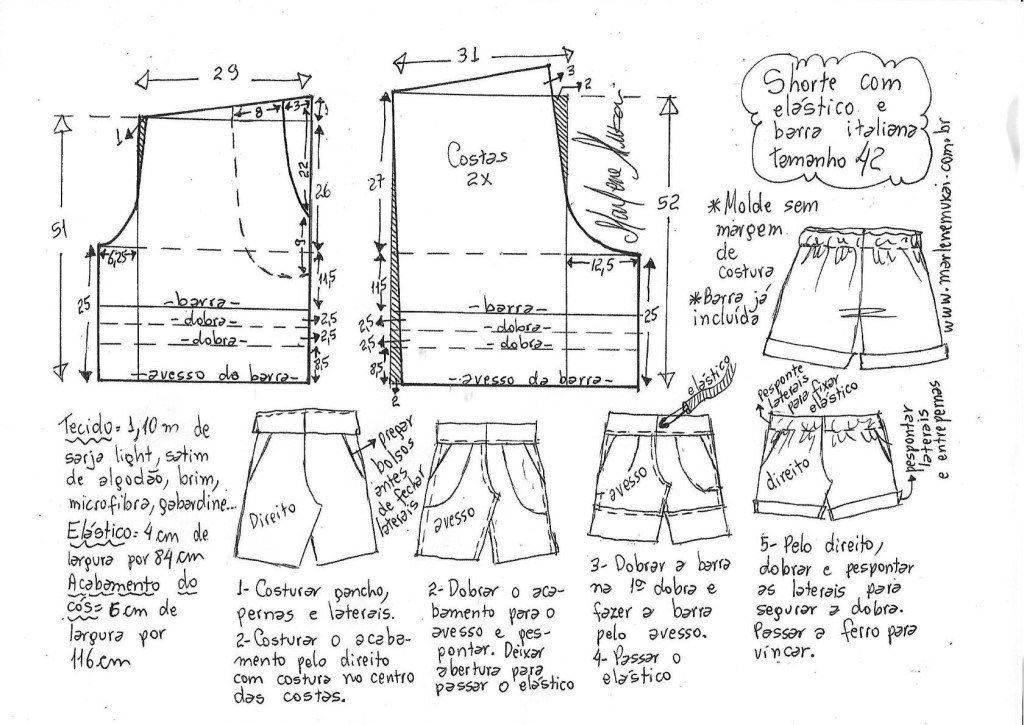 29
1
8
3
1
22
26
51
9
6,25
11,5
25
-barra-
-dobra-
-dobra-
2,5
2,5
8,5
-avesso da barra-
31
3
2
Costas
2X
27
52
12,5
11,5
-barra-
-dobra-
-dobra-
2,5
2,5
8,5
25
-avesso da barra-
2
Marlene Mukai
Shorte com
elástico e
barra italiana
tamanho 42
www.marlenemukai.com.br
*Molde sem
margem
de
costura
*Barra já
incluída
Tecido=1,10m de
sarja light, satim
de algodão, brim,
microfibra, gabardine...
Elástico=4cm de
largura por 84cm
Acabamento do
cós=6cm de
largura por
116cm
Direito
pregar
bolsos
antes
de fechar
laterais
1-Costurar gancho,
pernas e laterais.
2-Costurar o acaba-
mento pelo direito
com costura no centro
das costas.
avesso
2-Dobrar o aca-
bamento para o
avesso e pes-
pontar. Deixar
abertura para
passar o elástico
elástico
avesso
3-Dobrar a barra
na 1ª dobra e
fazer a barra
pelo avesso.
4-Passar o
elástico
pesponte
laterais
para fixar
elástico
direito
pespontar
laterais
e entrepernas
5-Pelo direito,
dobrar e pespontar
as laterais para
segurar a dobra.
Passar a ferro para
vincar.